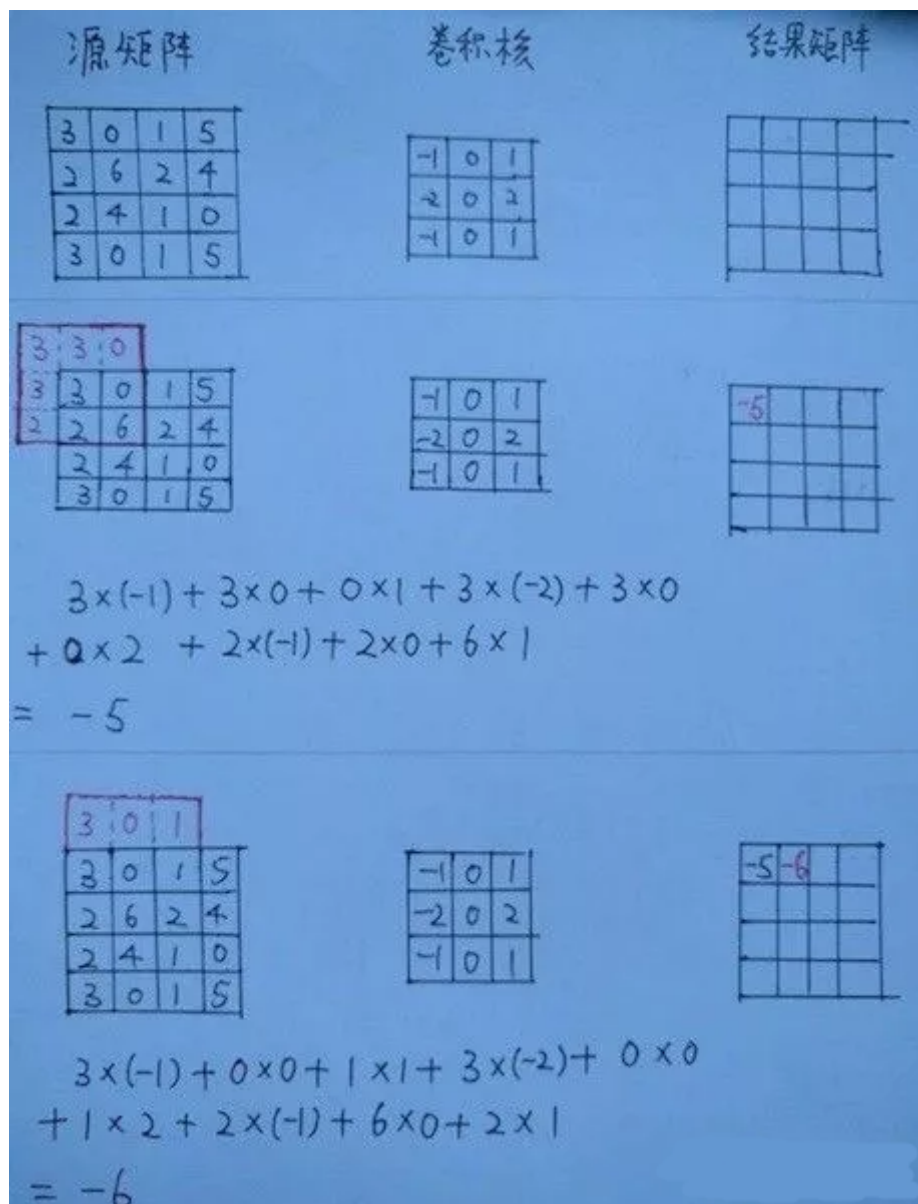 源矩阵 卷积核 结果矩阵
3 0 1 5
2 6 2 4
2 4 1 0
3 0 1 5
-1 0 1
-2 0 2
-1 0 1
3 3 0
3 3 0 1 5
2 2 6 2 4
2 4 1 0
3 0 1 5
-1 0 1
-2 0 2
-1 0 1
-5
3×(-1)+3×0+0×1+3×(-2)+3×0
+0×2 +2×(-1)+2×0+6×1
= -5
3 0 1
3 0 1 5
2 6 2 4
2 4 1 0
3 0 1 5
-1 0 1
-2 0 2
-1 0 1
-5 -6
3×(-1)+0×0+1×1+3×(-2)+0×0
+1×2+2×(-1)+6×0+2×1
= -6